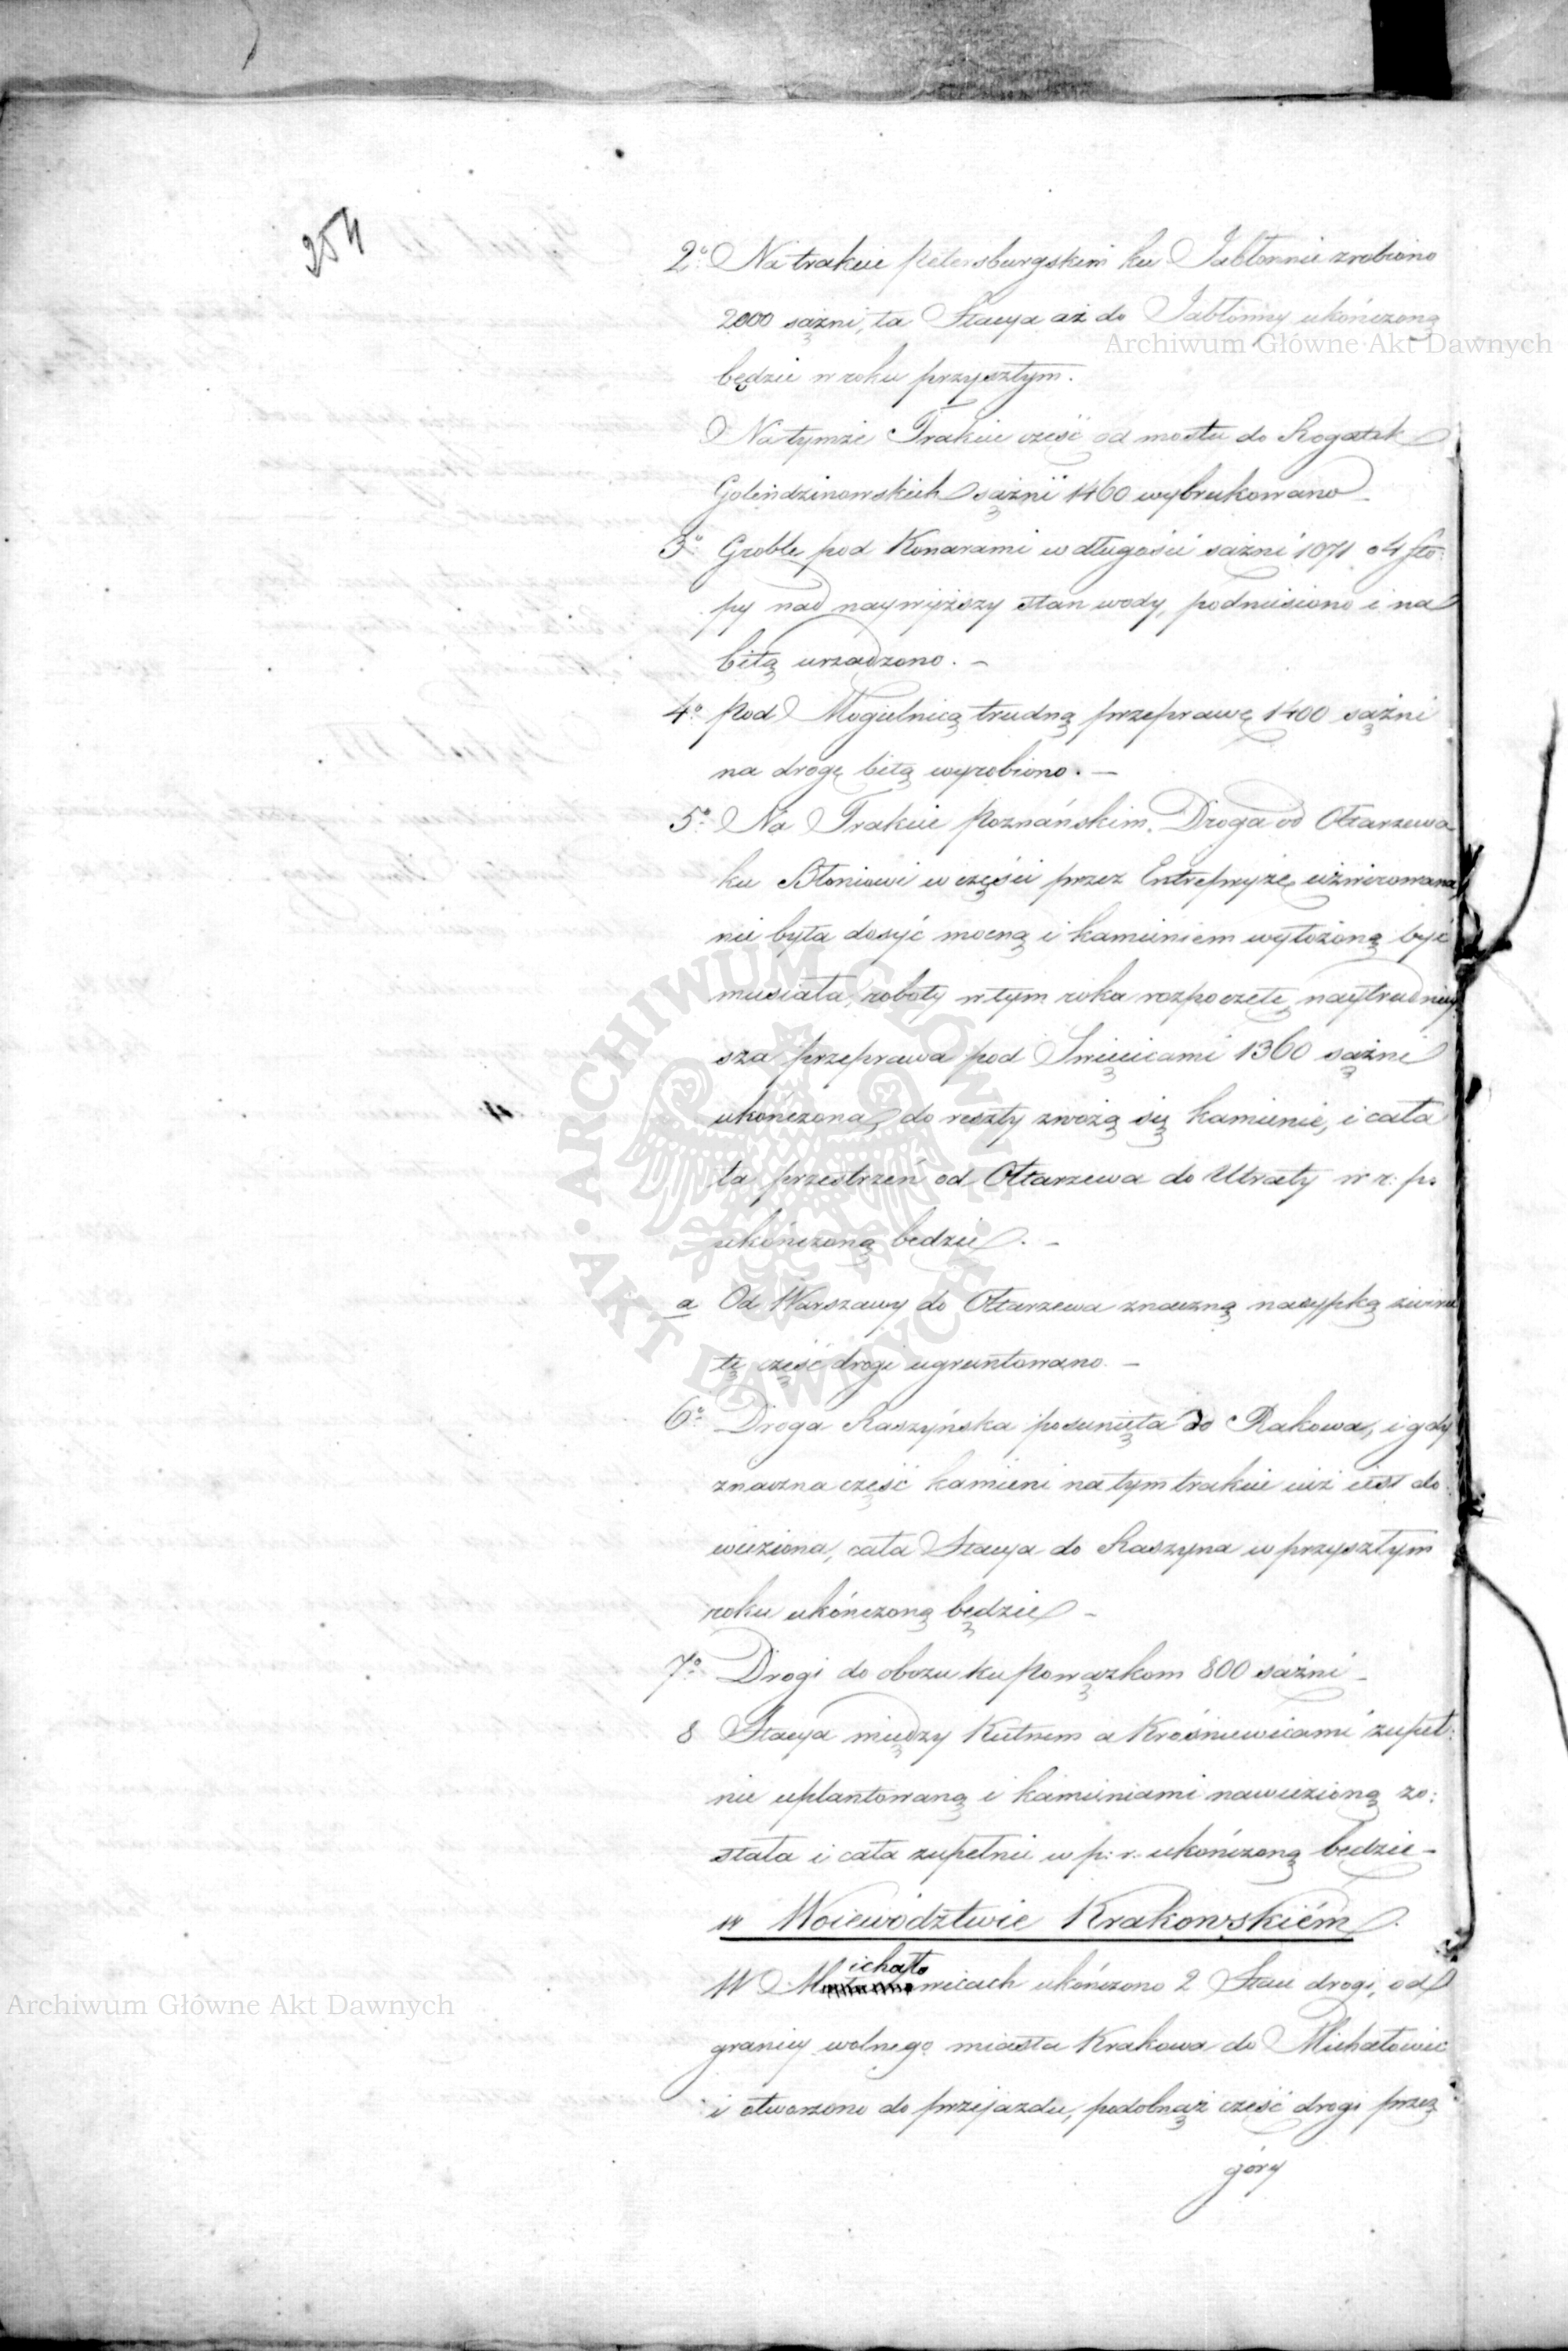 254
2o Na trakcie Petersburgskim ku Jabłonnie zrobiono
2000 sążni, ta Stacya aż do Jabłonny ukończoną
Archiwum Główne Akt Dawnych
będzie w roku przyszłym.
Na tymże Trakcie część od mostu do Rogatek
Golendzinowskich sążni 1460 wybrukowano
3o Groble pod Konarami w długości sążni 1071 o 4 sto:
py nad naywyższy stan wody, podniesiono i na
bitą urządzono. –
4o Pod Mogielnicą trudną przeprawę 1400 sążni
na drogę bitą wyrobiono. –
5o Na Trakcie Poznańskim. Droga od Ołtarzewa
ku Błoniowi w części przez Entrepryzę użwirowana
nie była dosyć mocną i kamieniem wyłożoną być
musiała, roboty w tym roku rozpoczęte, naytrudniey
sza przeprawa pod Święcicami 1360 sążni
ukończona, do reszty zwożą się kamienie, i cała
ta przestrzeń od Ołtarzewa do Utraty w r: p:
ukończoną będzie. –
a Od Warszawy do Ołtarzewa znaczną nasypką żwiru
tę część drogi ugruntowano. –
6o Droga Raszyńska posunięta do Rakowa, i gdy
znaczna część kamieni na tym trakcie iuż iest do
wieziona, cała Stacya do Raszyna w przyszłym
roku ukończoną będzie –
7o Drogi do obozu ku Powązkom 800 sążni –
8 Stacya między Kutnem a Krośniewicami zupeł:
nie uplantowaną i kamieniami nawiezioną zo:
stała i cała zupełnie w p: r: ukończoną będzie –
w Woiewództwie Krakowskiém.
ichało
W M wicach ukończono 2 Stac drogi, od
granicy wolnego miasta Krakowa do Michałowic
i otworzono do przejazdu, podobnąż część drogi przez
góry
Archiwum Główne Akt Dawnych
ARCHIWUM GŁÓWNE AKT DAWNYCH